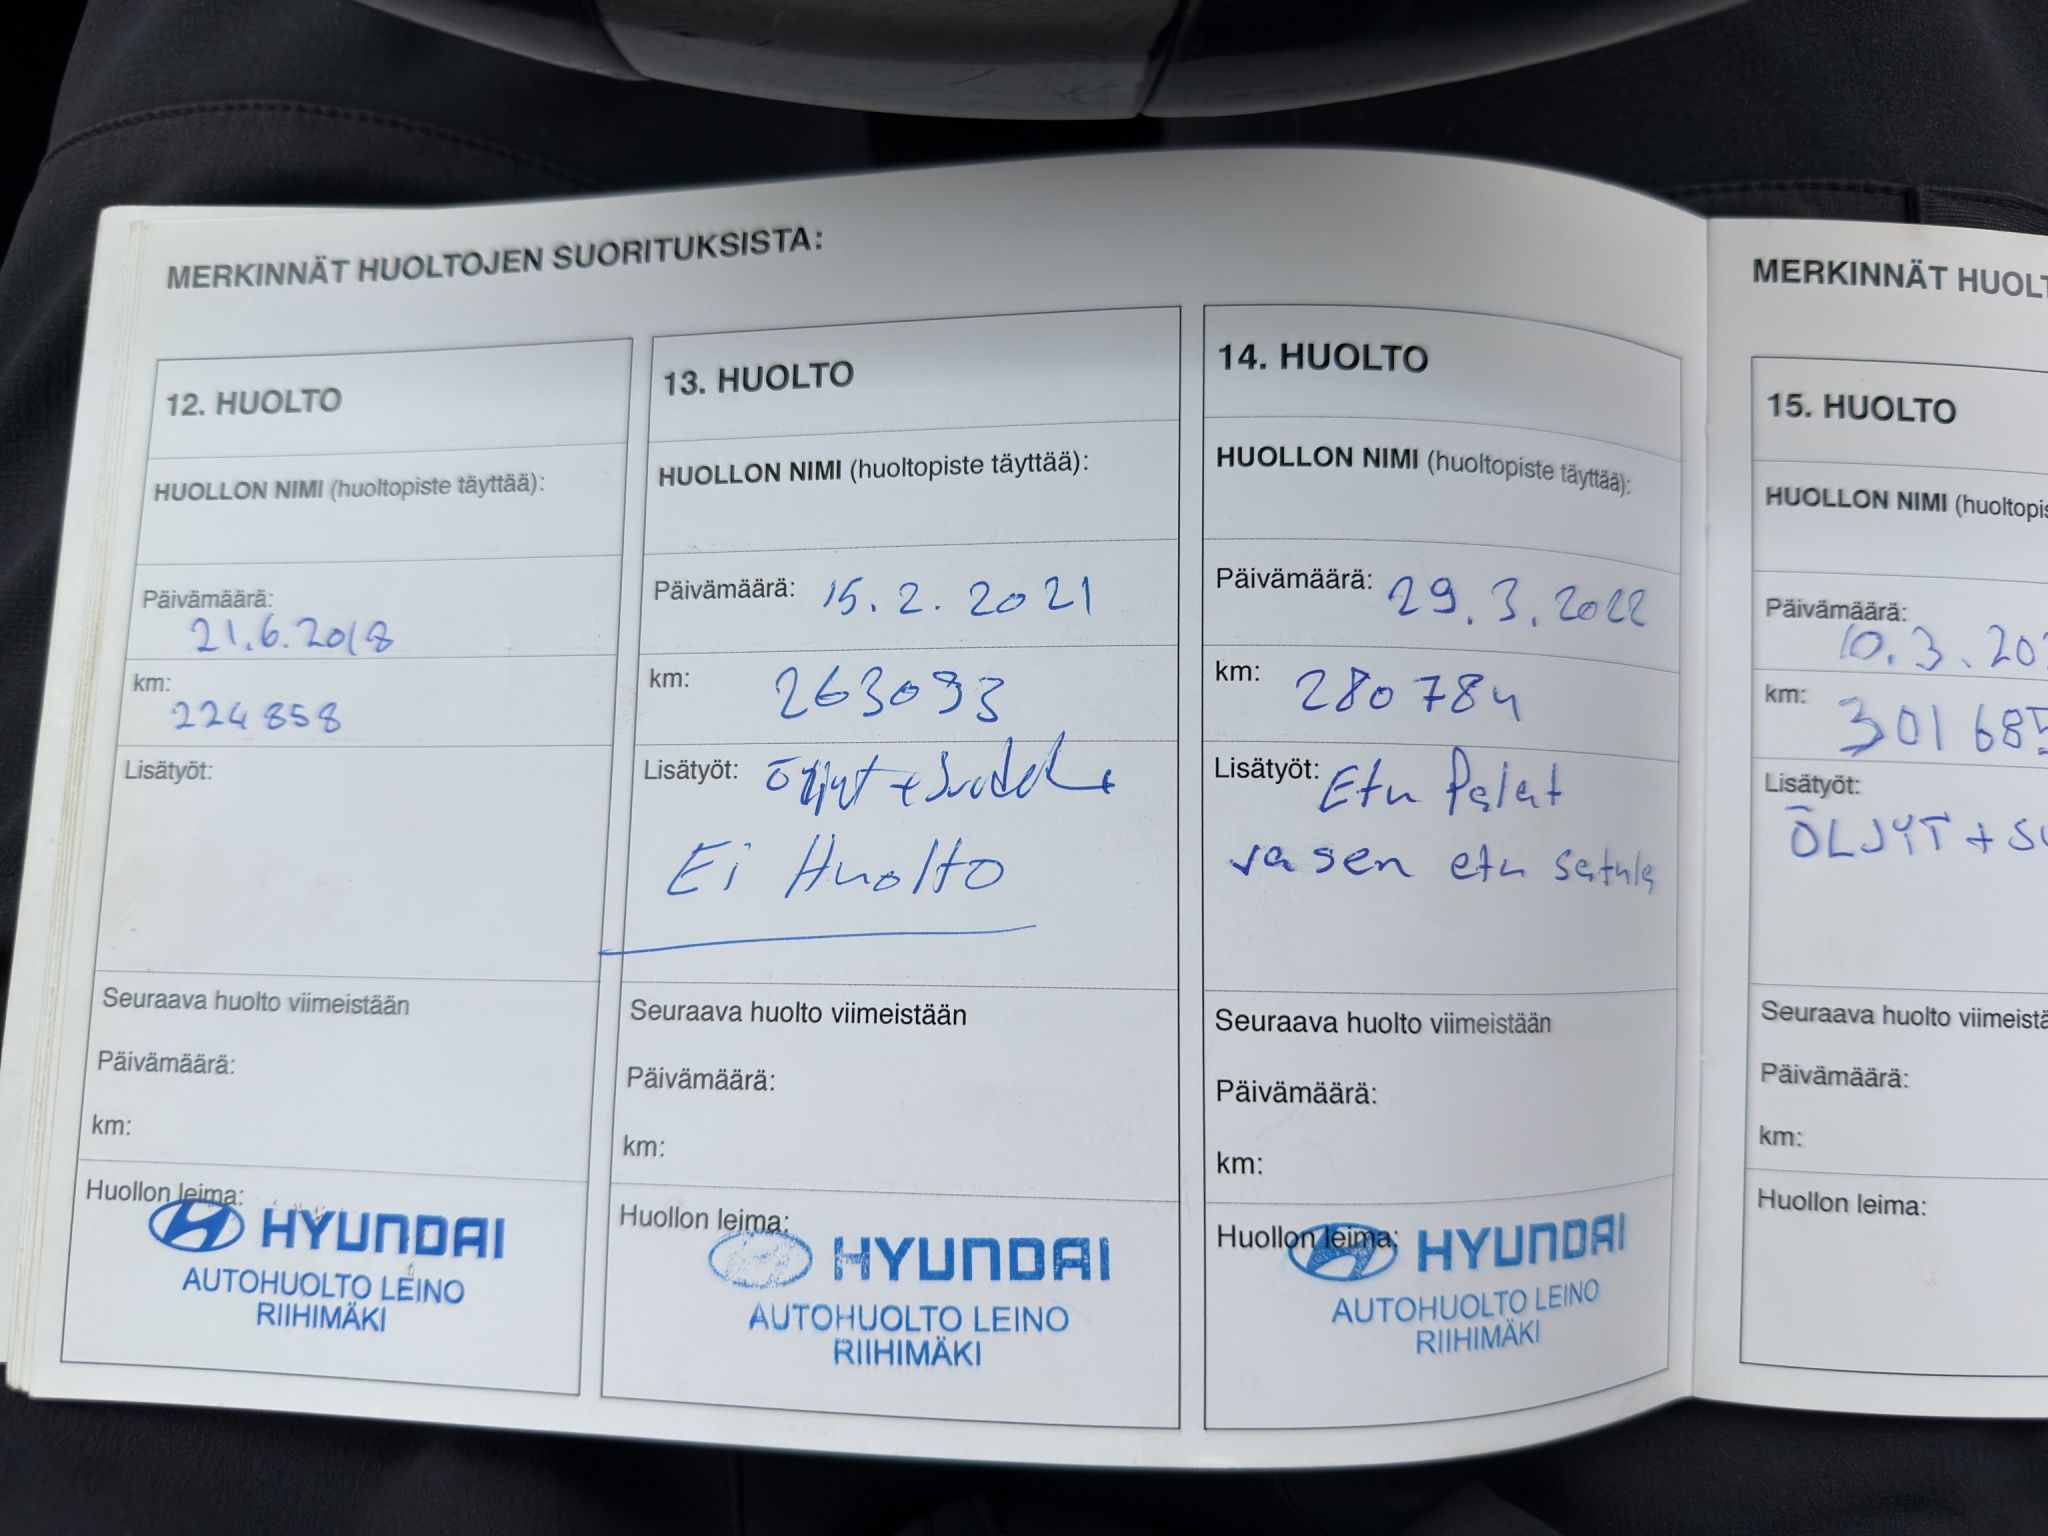 MERKINNÄT HUOLTOJEN SUORITUKSISTA:
12. HUOLTO
HUOLLON NIMI (huoltopiste täyttää):
Päivämäärä:
21.6.2018
km:
224858
Lisätyöt:
Seuraava huolto viimeistään
Päivämäärä:
km:
Huollon leima:
HYUNDAI
AUTOHUOLTO LEINO
RIIHIMÄKI
13. HUOLTO
HUOLLON NIMI (huoltopiste täyttää):
Päivämäärä: 15.2.2021
km: 263093
Lisätyöt: Öljyt +
Ei Huolto
Seuraava huolto viimeistään
Päivämäärä:
km:
Huollon leima:
HYUNDAI
AUTOHUOLTO LEINO
RIIHIMÄKI
14. HUOLTO
HUOLLON NIMI (huoltopiste täyttää):
Päivämäärä: 29.3.2022
km: 280784
Lisätyöt: Etu Palat
vasen etu satula
Seuraava huolto viimeistään
Päivämäärä:
km:
Huollon leima:
HYUNDAI
AUTOHUOLTO LEINO
RIIHIMÄKI
MERKINNÄT HUOLT
15. HUOLTO
HUOLLON NIMI (huoltopis
Päivämäärä:
10.3.20
km: 301685
Lisätyöt:
ÖLJYT + SU
Seuraava huolto viimeistä
Päivämäärä:
km:
Huollon leima: